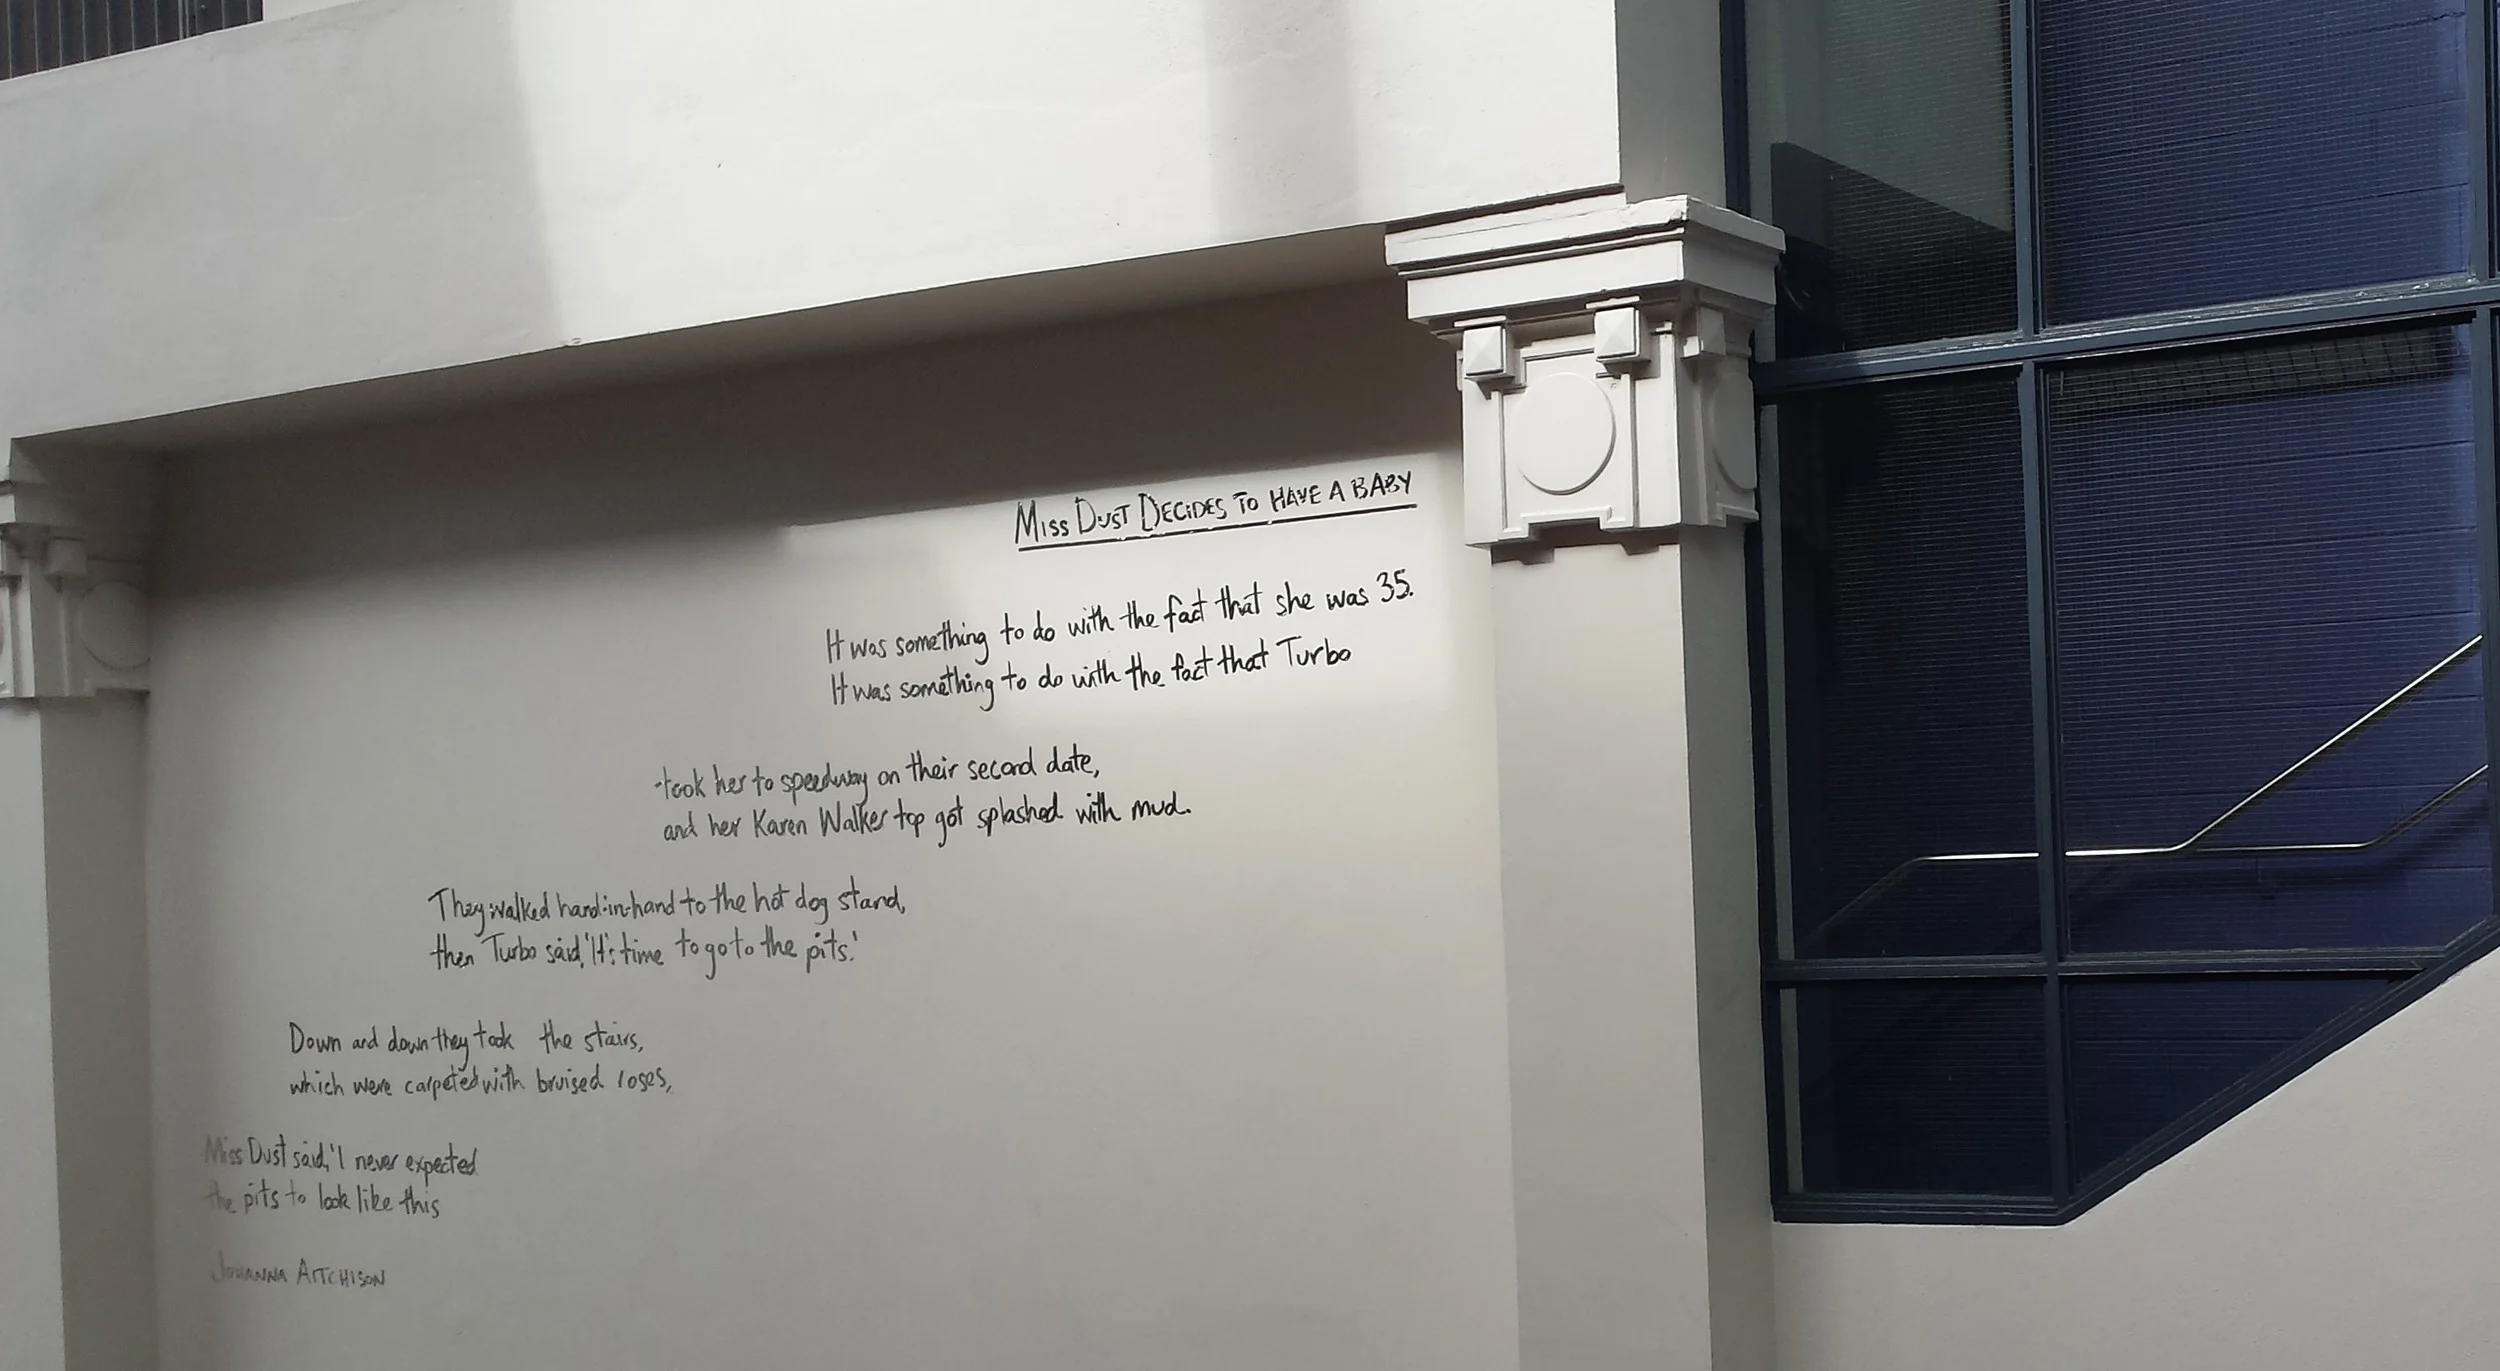 MISS DUST DECIDES TO HAVE A BABY
It was something to do with the fact that she was 35.
It was something to do with the fact that Turbo
took her to speedway on their second date,
and her Karen Walker top got splashed with mud.
They walked hand-in-hand to the hot dog stand,
then Turbo said, 'It's time to go to the pits.'
Down and down they took the stairs,
which were carpeted with bruised roses,
Miss Dust said, 'I never expected
the pits to look like this
JOHANNA AITCHISON